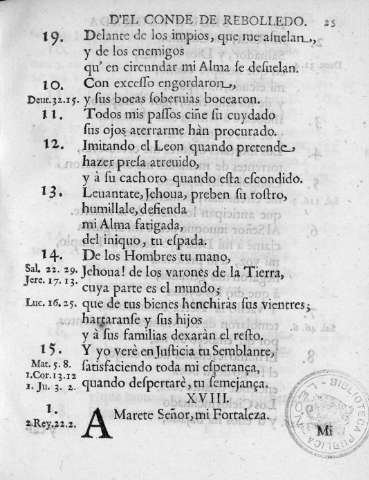 D'EL CONDE DE REBOLLEDO. 25
19. Delante de los impios, que me asuelan,
y de los enemigos
qu' en circundar mi Alma se desuelan.
10. Con excesso engordaron,
Deut. 32. 15. y sus bocas soberuias bocearon.
11. Todos mis passos ciñe su cuydado
sus ojos aterrarme hàn procurado.
12. Imitando el Leon quando pretende
hazer presa atreuido,
y à su cachoro quando esta escondido.
13. Leuantate, Jehoua, preben su rostro,
humillale, defienda
mi Alma fatigada,
del iniquo, tu espada.
14. De los Hombres tu mano,
Sal. 22. 29. Jehoua! de los varones de la Tierra,
Jere. 17. 13. cuya parte es el mundo;
Luc. 16. 25. que de tus bienes henchiràs sus vientres;
hartaranse y sus hijos
y à sus familias dexaràn el resto.
15. Y yo verè en Justicia tu Semblante,
Mat. 5. 8. satisfaciendo toda mi esperança,
1. Cor. 13. 12
1. Ju. 3. 2. quando despertarè, tu semejança.
XVIII.
1. AMarete Señor, mi Fortaleza.
2. Rey. 22. 2.
Mi
BIBLIOTECA PUBLICA
LEON